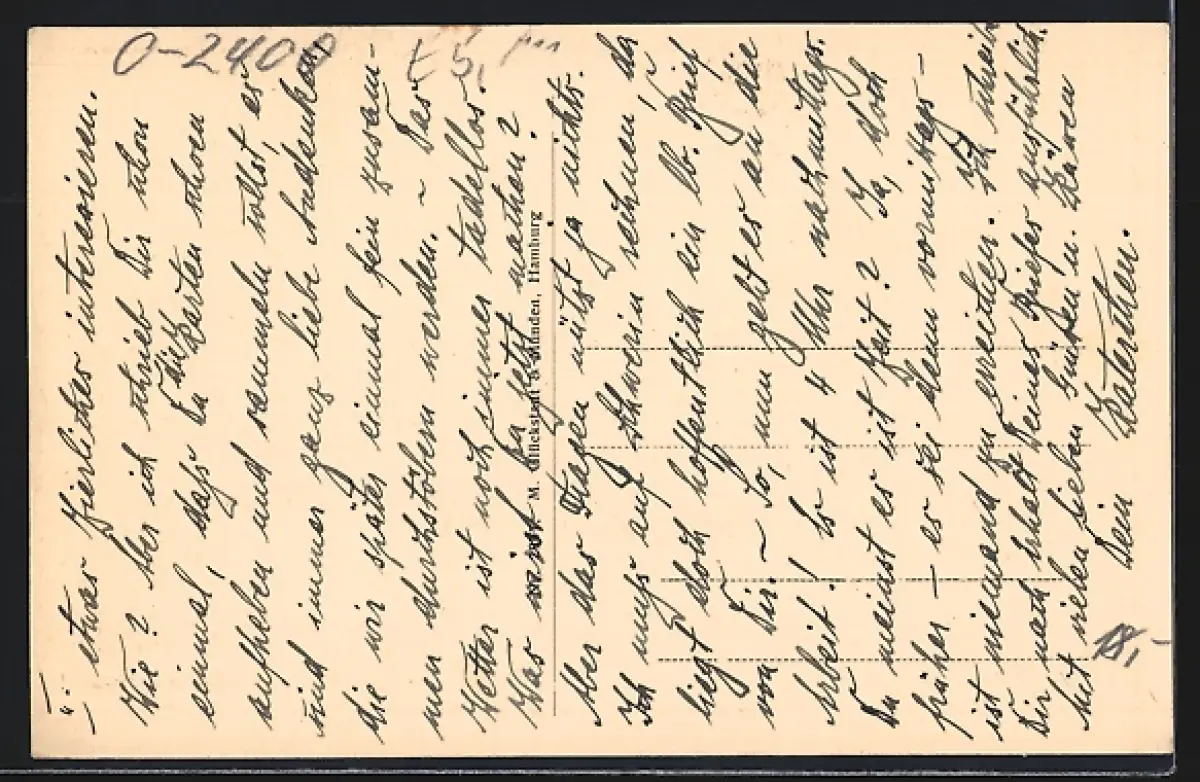 O-2400
etwas zierliches interessieren.
Wie? Aber ich schrieb Dir schon
einmal, dass Du die Karten schoen
aufheben und sammeln sollst, es
sind immer ganz liebe Andenken,
die wir später einmal fein zusam-
men durchstöbern werden. ~ Das
Wetter ist noch immer tadellos.
Was ist da jetzt machen?
M. Glückstadt & Münden, Hamburg
Aber das Klagen nützt ja nichts.
Ich muss auf Schwerin rechnen, da
liegt doch hoffentlich ein lb. Brief
von Dir. ~ So, nun geht es an die
Arbeit! Es ist 4 Uhr nachmittags.
Du meinst es ist Zeit? Ja, doch
früher — es sei denn vormittags —
ist niemand zu erreichen. Ich schreib
Dir nach Erhalt Deines Briefes ausführlich.
Mit vielen lieben Grüßen u. Küssen
Dein
18,-